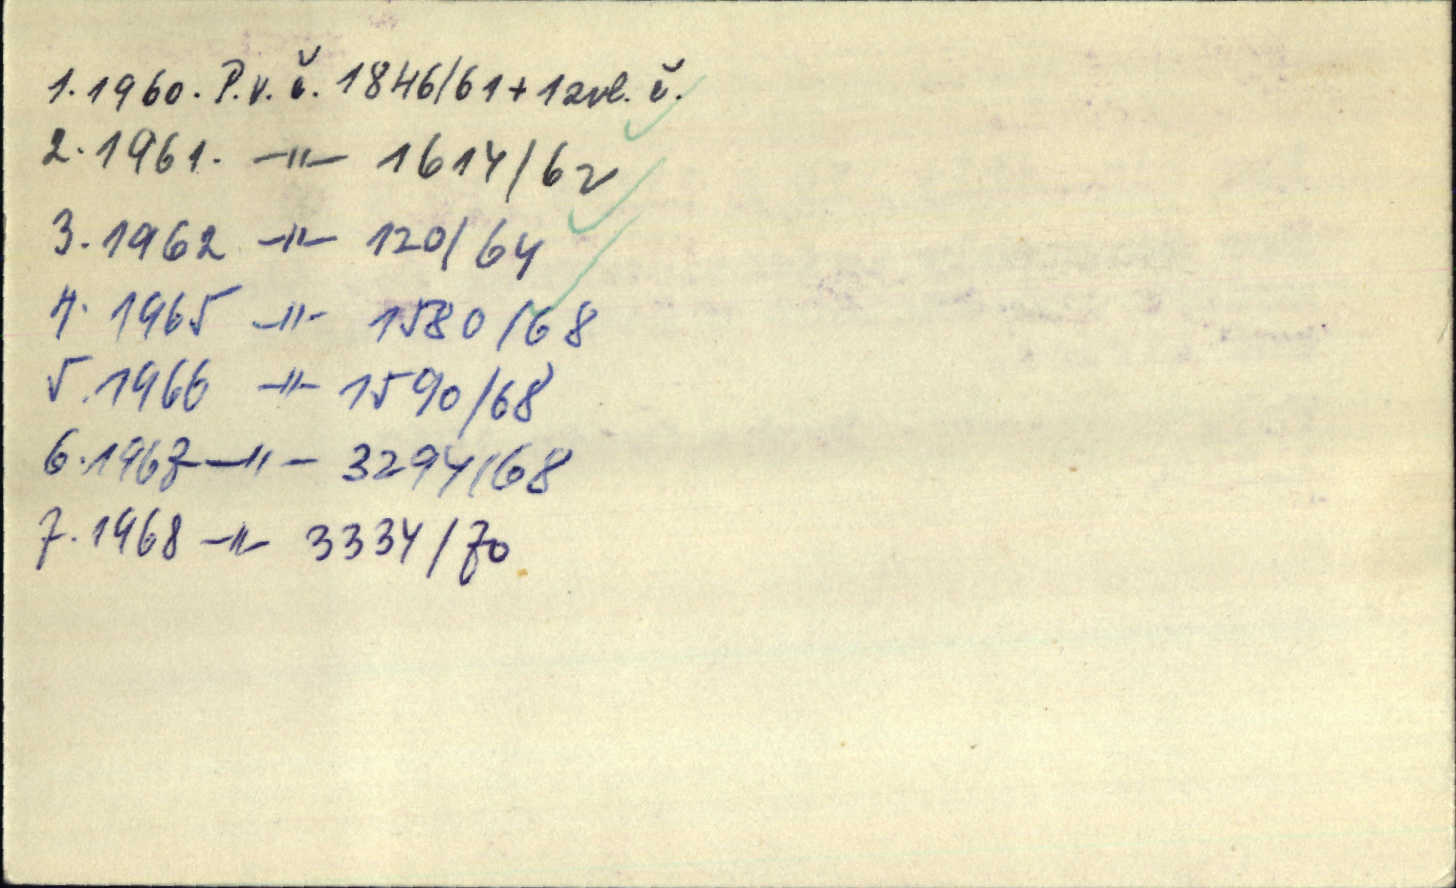 1. 1960. P.v.č. 1846/61 + 1 zvl. č.
2. 1961. —"— 1614/62
3. 1962 —"— 120/64
4. 1965 —"— 1580/68
5. 1966 —"— 1590/68
6. 1967 —"— 3294/68
7. 1968 —"— 3334/70